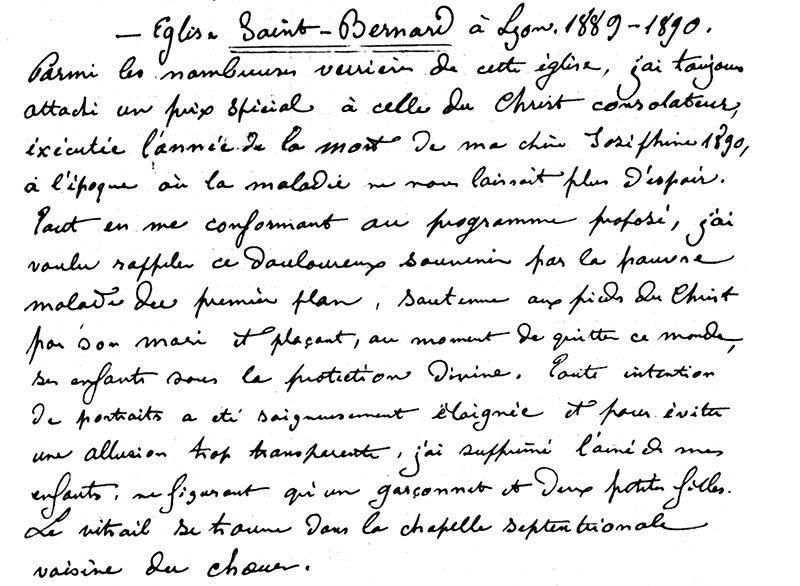 — Eglise Saint-Bernard à Lyon. 1889-1890.
Parmi les nombreuses verrières de cette église, j'ai toujours
attaché un prix spécial à celle du Christ consolateur,
exécutée l'année de la mort de ma chère Joséphine 1890,
à l'époque où la maladie ne nous laissait plus d'espoir.
Tout en me conformant au programme proposé, j'ai
voulu rappeler ce douloureux souvenir par la pauvre
malade du premier plan, soutenue aux pieds du Christ
par son mari et plaçant, au moment de quitter ce monde,
ses enfants sous la protection divine. Toute intention
de portraits a été soigneusement éloignée et pour éviter
une allusion trop transparente, j'ai supprimé l'ainé de mes
enfants, ne figurant qu'un garçonnet et deux petites filles.
Le vitrail se trouve dans la chapelle septentrionale
voisine du chœur.